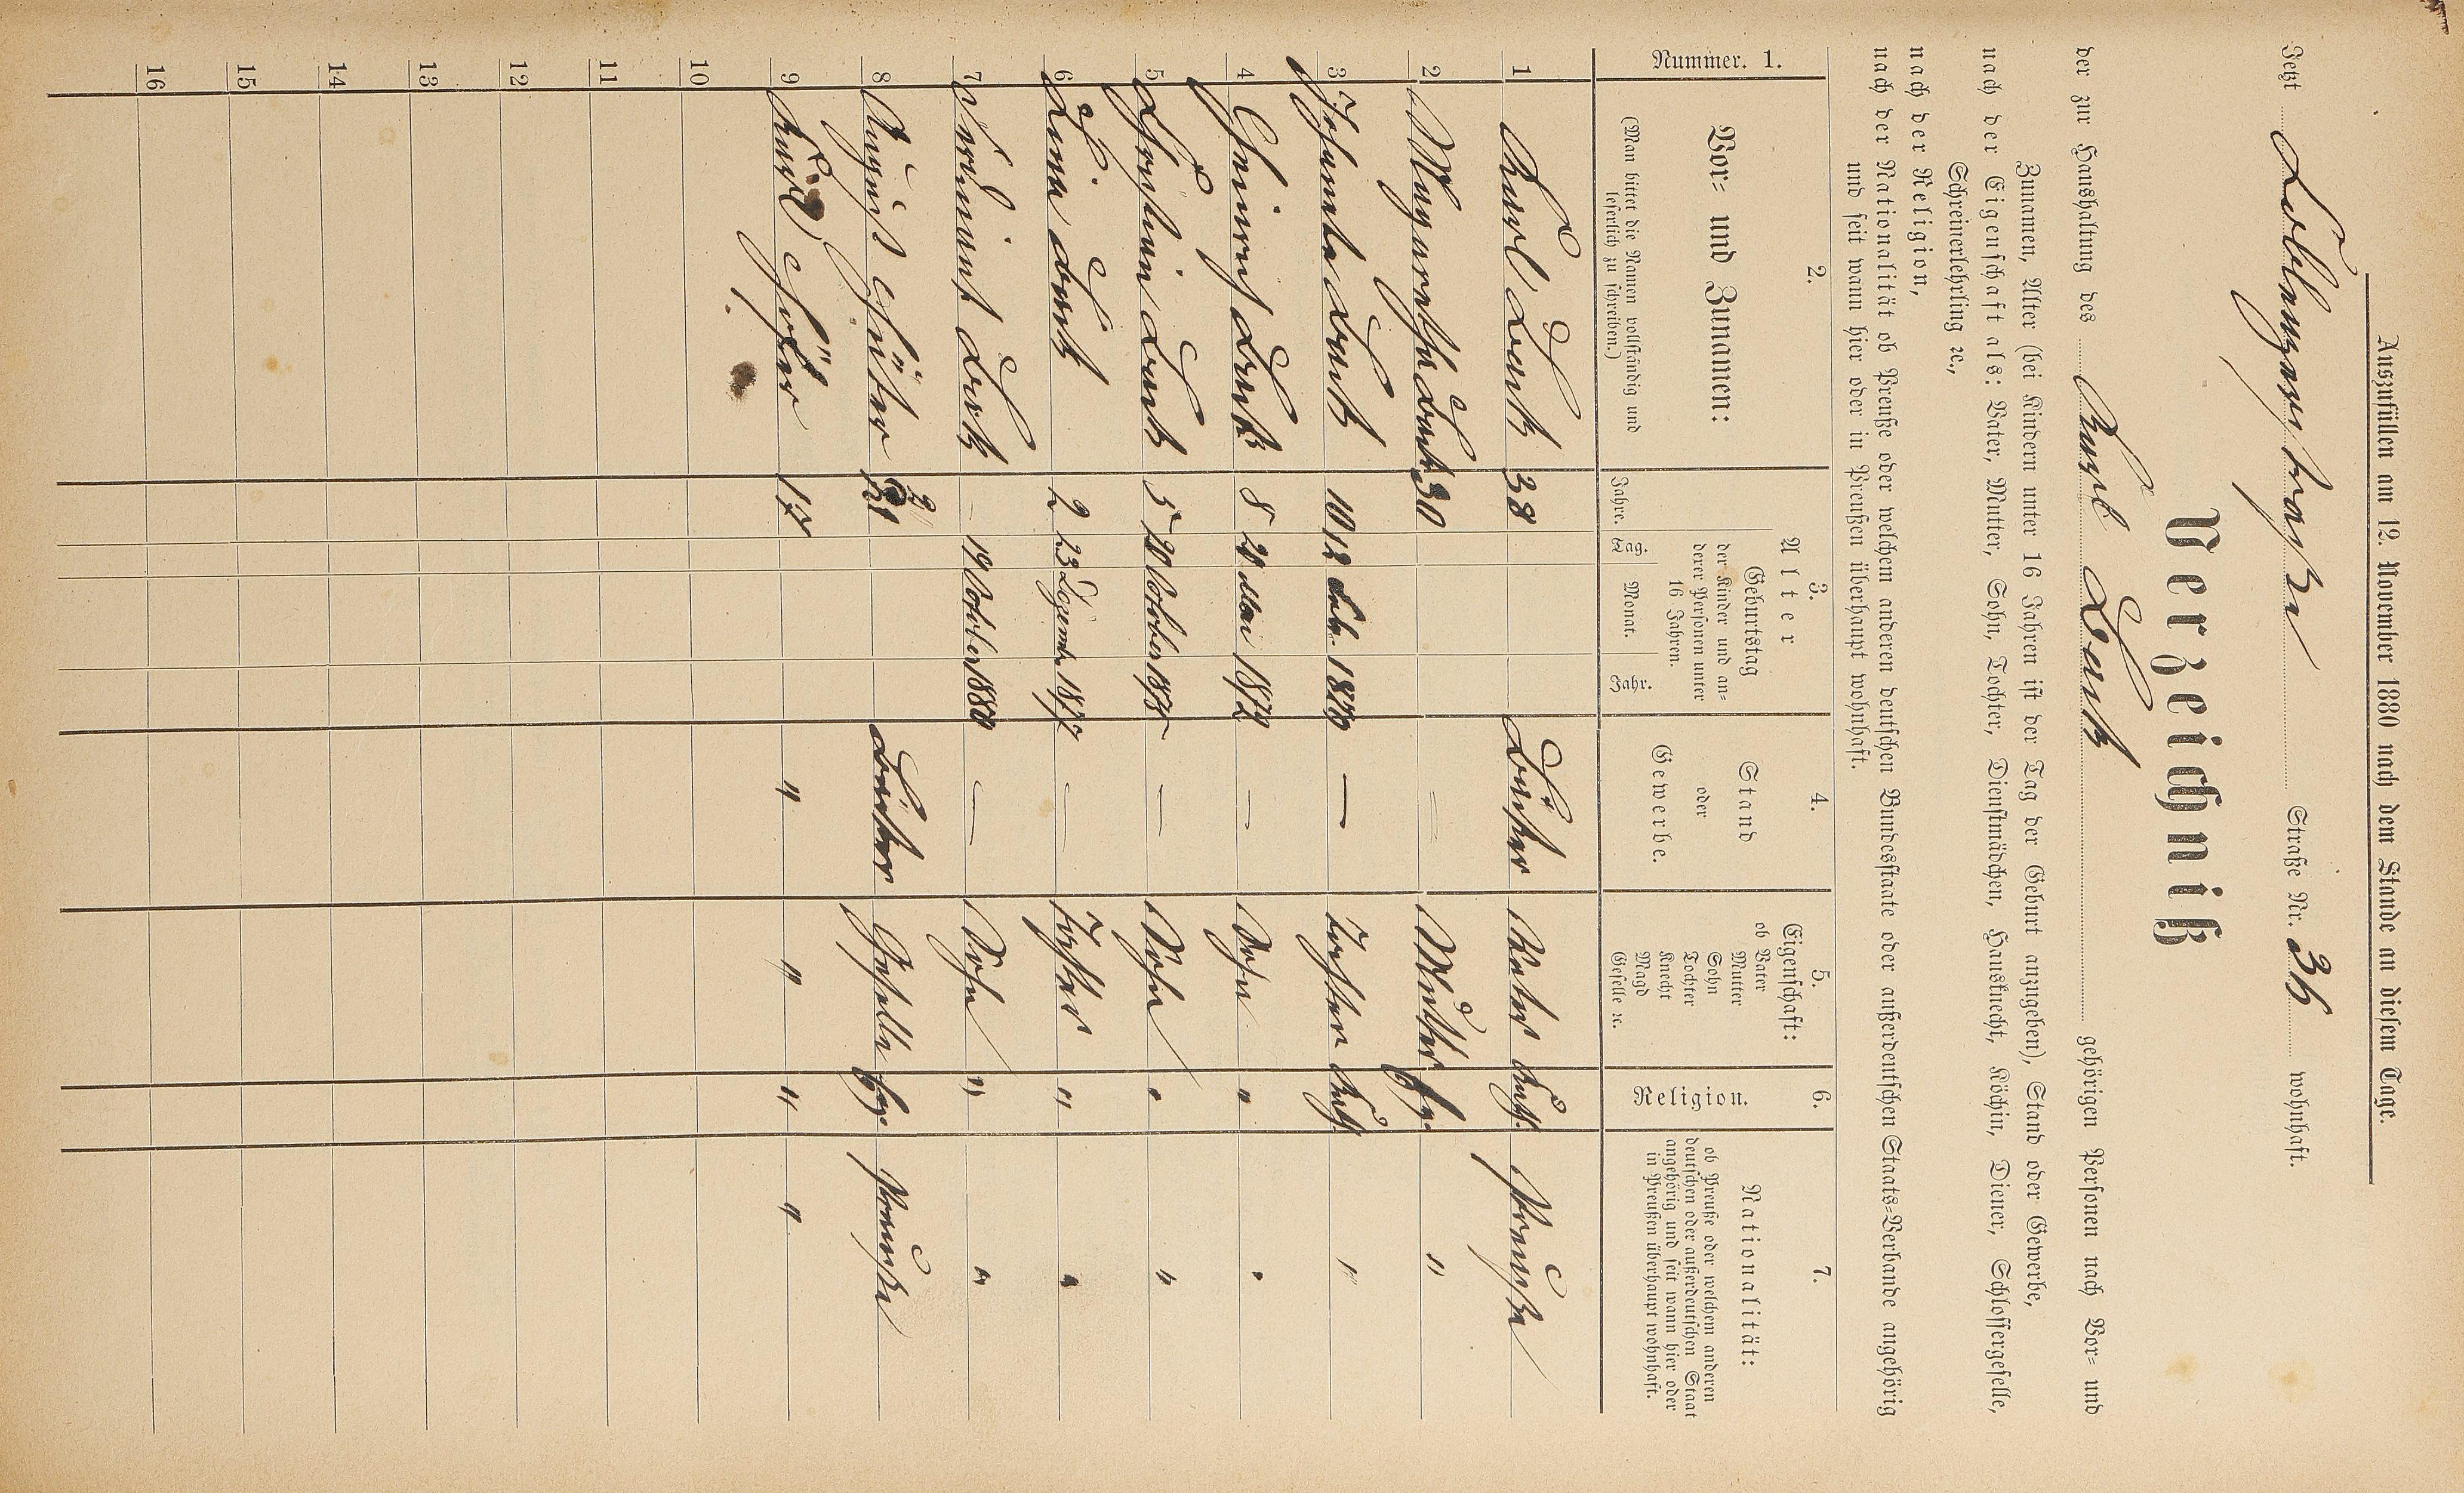 Auszufüllen am 12. November 1880 nach dem Stande an diesem Tage.
Jetzt Koblenzerstraße Straße Nr. 36 wohnhaft.
Verzeichniß
der zur Haushaltung des Karl gehörigen Personen nach Vor= und
Zunamen, Alter (bei Kindern unter 16 Jahren ist der Tag der Geburt anzugeben), Stand oder Gewerbe,
nach der Eigenschaft als: Vater, Mutter, Sohn, Tochter, Dienstmädchen, Hausknecht, Köchin, Diener, Schlossergeselle,
Schreinerlehrling ec.,
nach der Religion,
nach der Nationalität ob Preuße oder welchem anderen deutschen Bundesstaate oder außerdeutschen Staats=Verbande angehörig
und seit wann hier oder in Preußen überhaupt wohnhaft.
Nummer. 1.
2.
Vor= und Zunamen:
(Man bittet die Namen vollständig und
leserlich zu schreiben.)
3.
Alter
Jahre.
Geburtstag
der Kinder und an=
derer Personen unter
16 Jahren.
Tag. Monat. Jahr.
4.
Stand
oder
Gewerbe.
5.
Eigenschaft:
ob Vater
Mutter
Sohn
Tochter
Knecht
Magd
Geselle ec.
6.
Religion.
7.
Nationalität:
ob Preuße oder welchem anderen
deutschen oder außerdeutschen Stat
angehörig und seit wann hier oder
in Preußen überhaupt wohnhaft.
1 Karl 38 Bäcker Vater Kath. Preuße
2 Margaretha 30 = Mutter "
3 10 12 1870 — Tochter Kath. "
4 Heinrich 8 Mai 1872 — Sohn " "
5 5 20 October 1875 — Sohn " "
6 Lina 2 23 Dezemb. 1877 — Tochter " "
7 — 19 October 1880 — Sohn " "
8 August Bäcker Geselle Preuße
9 17 " " " "
10
11
12
13
14
15
16